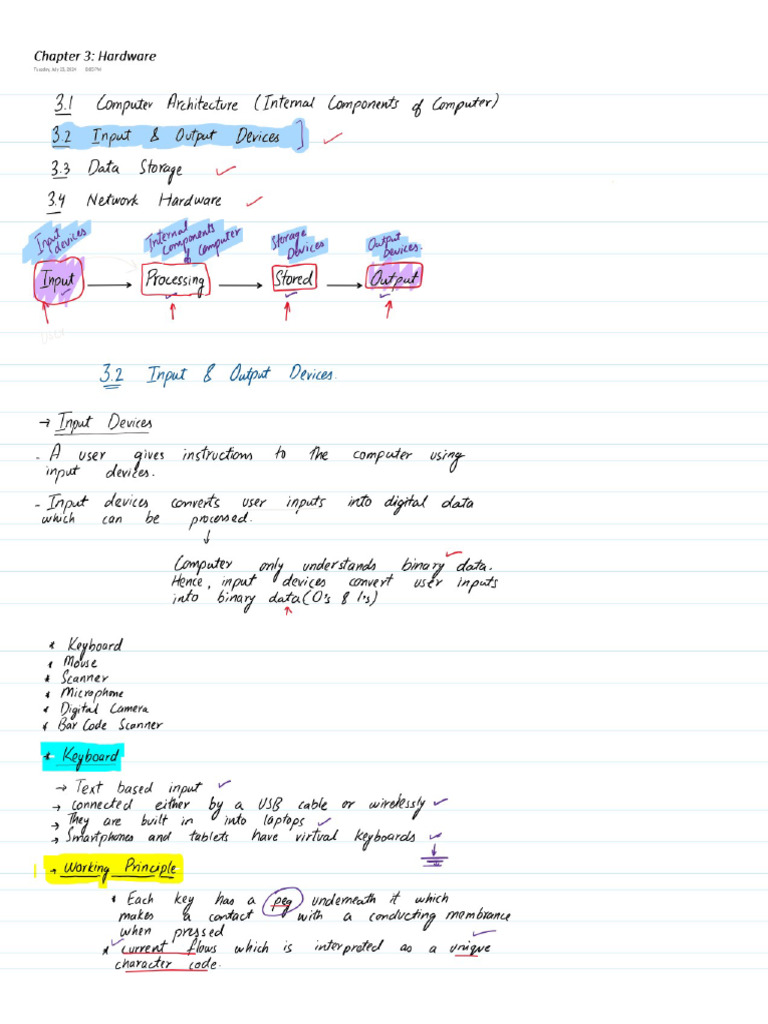 Chapter 3: Hardware
3.1 Computer Architecture (Internal Components of Computer)
3.2 Input & Output Devices ]
3.3 Data Storage
3.4 Network Hardware
Input devices
Internal Components of Computer
Storage Devices
Output Devices.
Input → Processing → Stored → Output
3.2 Input & Output Devices.
→ Input Devices
- A user gives instructions to the computer using
input devices.
- Input devices converts user inputs into digital data
which can be processed.
↓
Computer only understands binary data.
Hence, input devices convert user inputs
into binary data (0's & 1's)
* Keyboard
* Mouse
* Scanner
* Microphone
* Digital Camera
* Bar Code Scanner
* Keyboard
→ Text based input
→ Connected either by a USB cable or wirelessly
→ They are built in into laptops
→ Smartphones and tablets have virtual keyboards
→ Working Principle
* Each key has a peg underneath it which
makes a contact with a conducting membrance
when pressed
* current flows which is interpreted as a unique
character code.